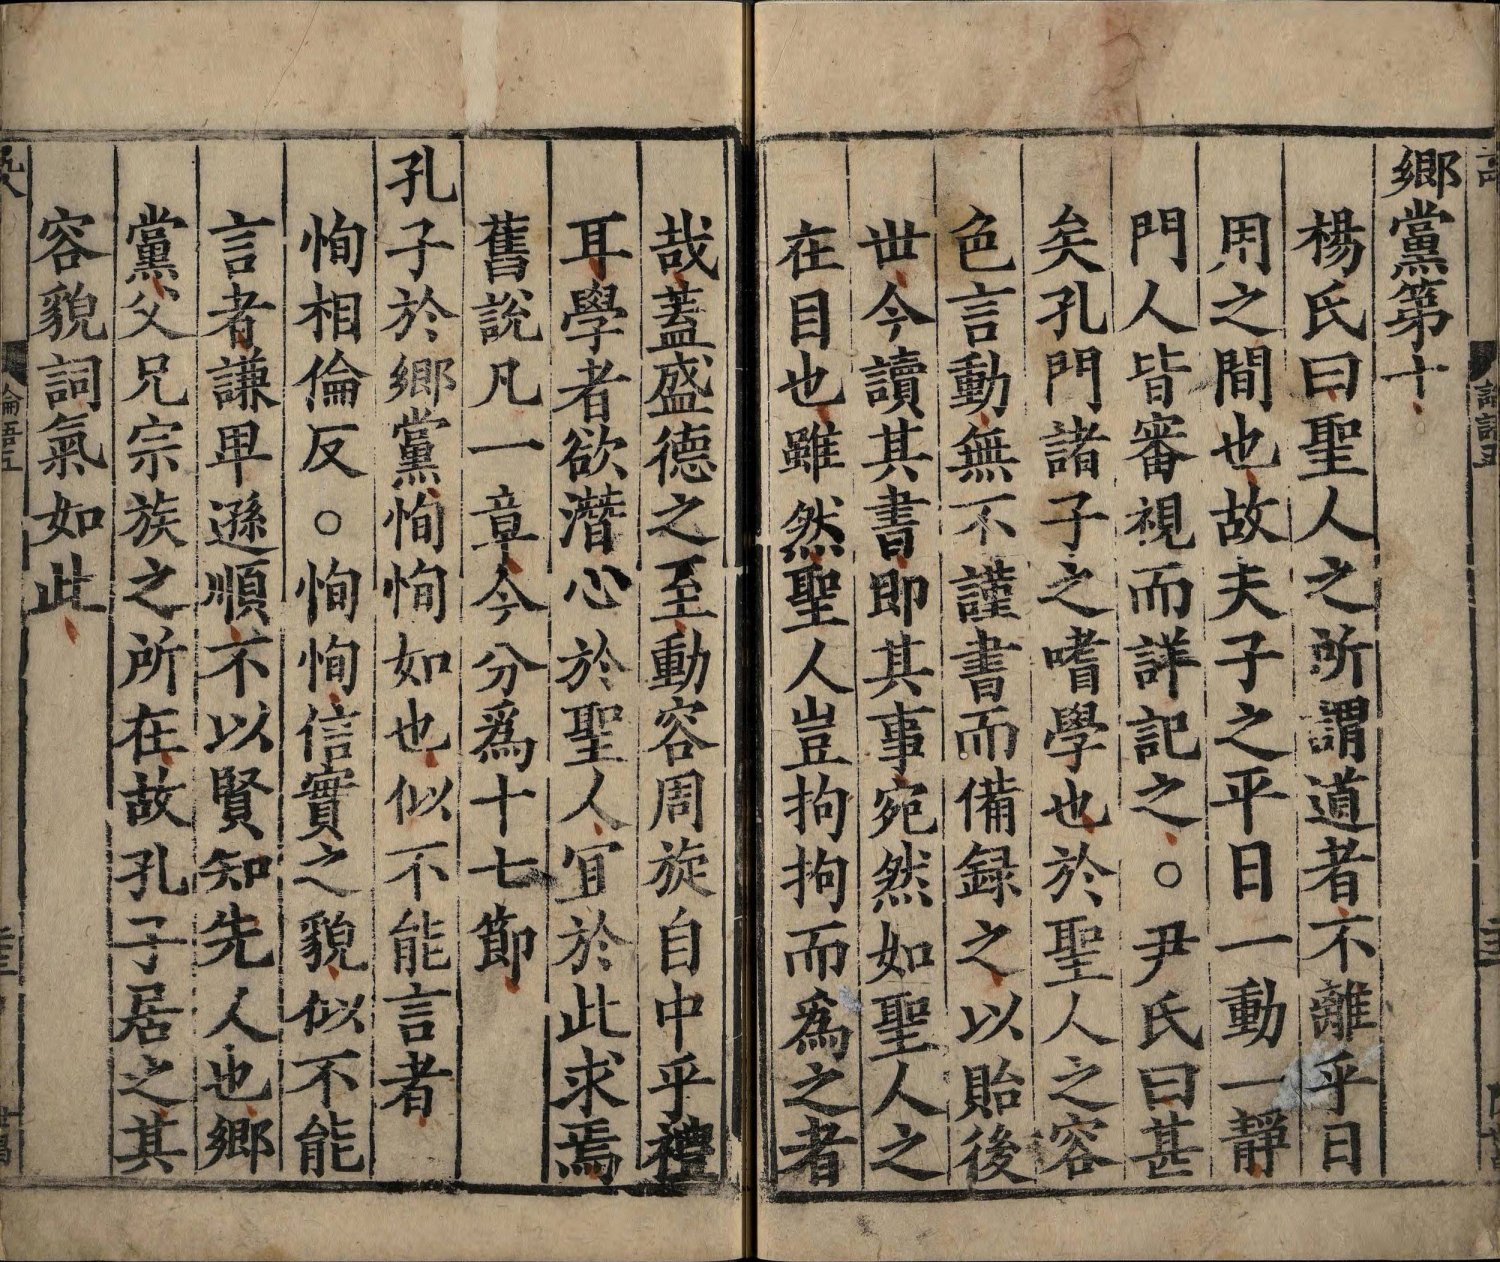 鄉黨第十
楊氏曰聖人之所謂道者不離乎日
用之間也故夫子之平日一動一靜
門人皆審視而詳記之○尹氏曰甚
矣孔門諸子之嗜學也於聖人之容
色言動無不謹書而備録之以貽後
世今讀其書即其事宛然如聖人之
在目也雖然聖人豈拘拘而爲之者
哉蓋盛德之至動容周旋自中乎禮
耳學者欲潛心於聖人宜於此求焉
舊說凡一章今分爲十七節
孔子於鄉黨恂恂如也似不能言者
恂相倫反○恂恂信實之貌似不能
言者謙卑遜順不以賢知先人也鄉
黨父兄宗族之所在故孔子居之其
容貌詞氣如此